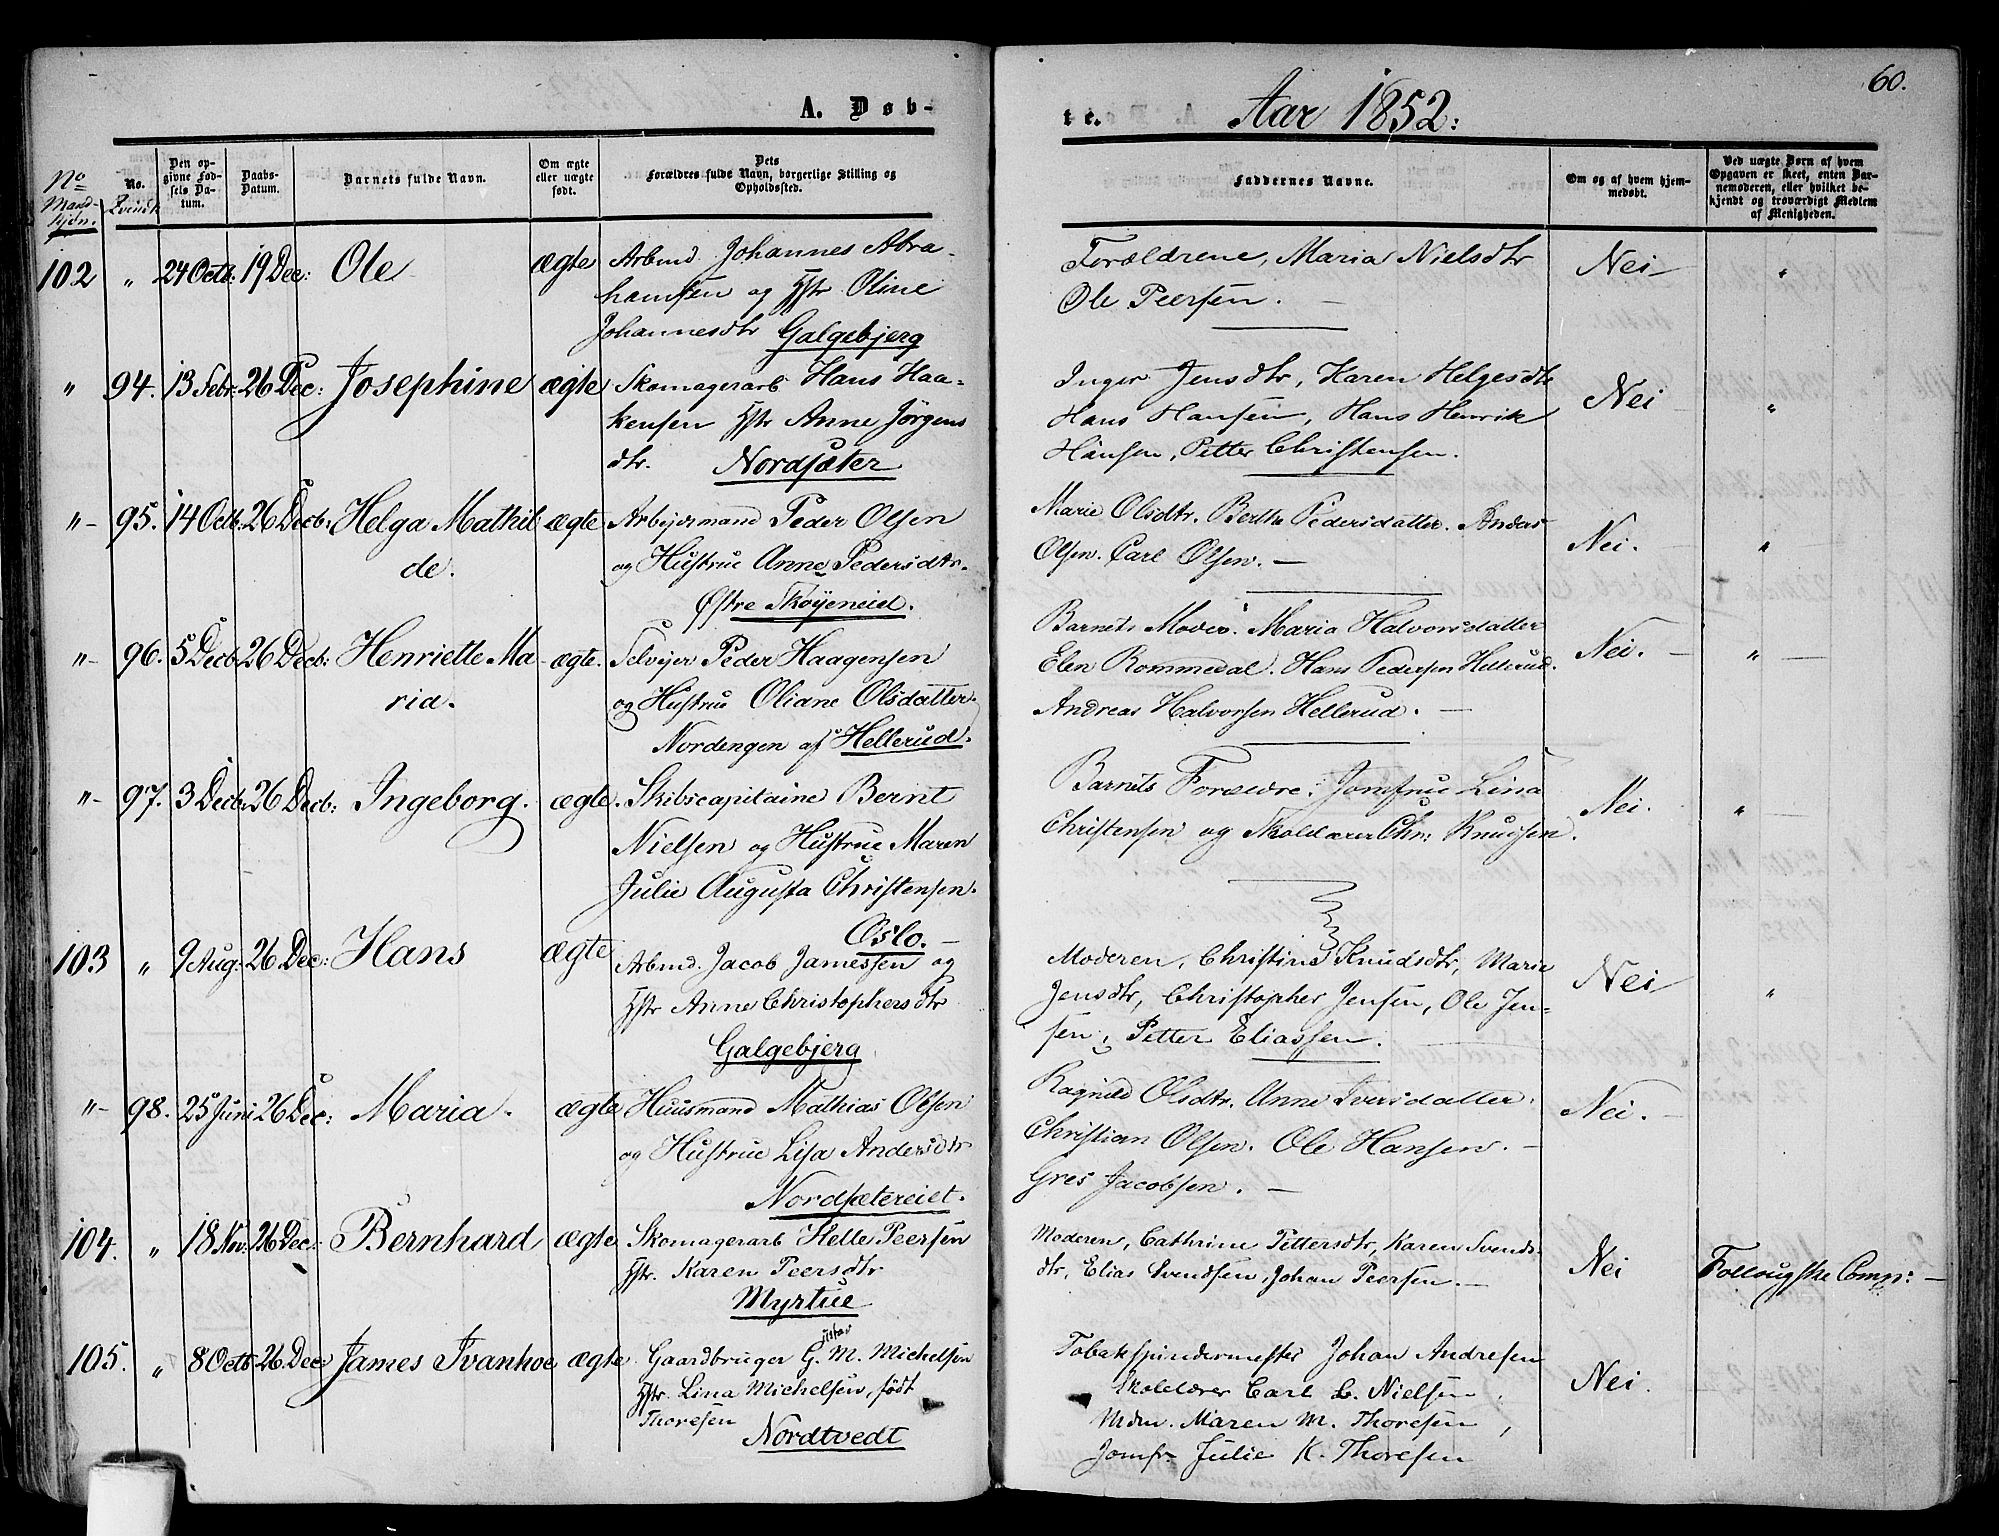 A. Døb-
te. Aar 1852:
60.
No Mandkjøn.
No. Qvindk
Den opgivne Fødsels Datum.
Daabs-Datum.
Barnets fulde Navn.
Om ægte eller uægte født.
Dets Forældres fulde Navn, borgerlige Stilling og Opholdssted.
Faddernes Navne.
Om og af hvem hjemmedøbt.
Ved uægte Børn af hvem Opgaven er skeet, enten Barnemoderen, eller hvilket bekjendt og troværdigt Medlem af Menigheden.
102 " 24 Octb: 19 Dec: Ole ægte Arbmd. Johannes Abra
hamsen og Hstr Oline
Johannesdtr Galgebjerg
Forældrene, Maria Nielsdtr
Ole Peersen. —
Nei — "
" 94. 13 Febr: 26 Dec: Josephine ægte Skomagerarb Hans Haa-
kensen Hstr Anne Jörgens
dtr. Nordsæter
Inger Jensdtr, Karen Helgesdtr
Hans Hansen, Hans Henrik
Hansen, Petter Christensen.
Nei "
"- 95. 14 Octb: 26 Decb: Helga Mathil ægte. Arbejdsmand Peder Olsen
de. og Hustrue Anne Pedersdtr.
Østre Skøjeneiel.
Marie Olsdtr. Berthe Pedersdatter. Andas
Olsen. Carl Olsen. —
Nei. — "
"- 96. 5 Decb: 26 Decb: Henriette Ma- ægte. Selvejer Peder Haagensen
ria. og Hustru Oliane Olsdatter.
Nordengen af Hellerud.
Barnets Moder. Maria Halvorsdatter
Elen Rommedal. Hans Pedersen Hellerud.
Andreas Halvorsen Hellerud. —
Nei. — " —
"- 97. 3 Decb: 26 Decb: Ingeborg. ægte. Skibscapitaine Bernt
Nielsen og Hustrue Maren
Julie Augusta Christensen.
Oslo. —
Barnets Forældre: Jomfrue Lina
Christensen og Skolelærer Chr: Knudsen.
Nei. "
103 " 9 Aug: 26 Dec: Hans ægte Arbmd. Jacob Jamessen og
Hstr Anne Christophersdtr
Galgebjerg
Moderen, Christine Knudsdtr, Marie
Jensdtr, Christopher Jensen, Ole Jen-
sen, Petter Eliassen.
Nei "
"- 98. 25 Juni 26 Dec: Maria. ægte Huusmand Mathias Olsen
og Hustrue Lisa Andersdtr
Nordsætereiet.
Ragnild Olsdtr. Anne Iversdatter.
Christian Olsen. Ole Hansen. —
Gres Jacobsen. —
Nei. —
104. " 18 Nov: 26 Dec: Bernhard ægte Skomagerarb Helle Peersen
Hstr. Karen Peersdtr
Myrtue
Moderen, Cathrine Pettersdtr, Karen Svends-
dtr, Elias Svendsen, Johan Peersen. —
Nei Follougske Comp: —
105. " 8 Octb 26 Dec James Ivanhoe ægte. Gaardbruger G. M. Michelsen
Hstr. Lina Michelsen, født
Thoresen
Nordtvedt
Tobakspindermester Johan Andresen
Skolelærer Carl L. Nielsen,
Mdm. Maren M. Thoresen,
Jomfr. Julie K. Thoresen
Nei.